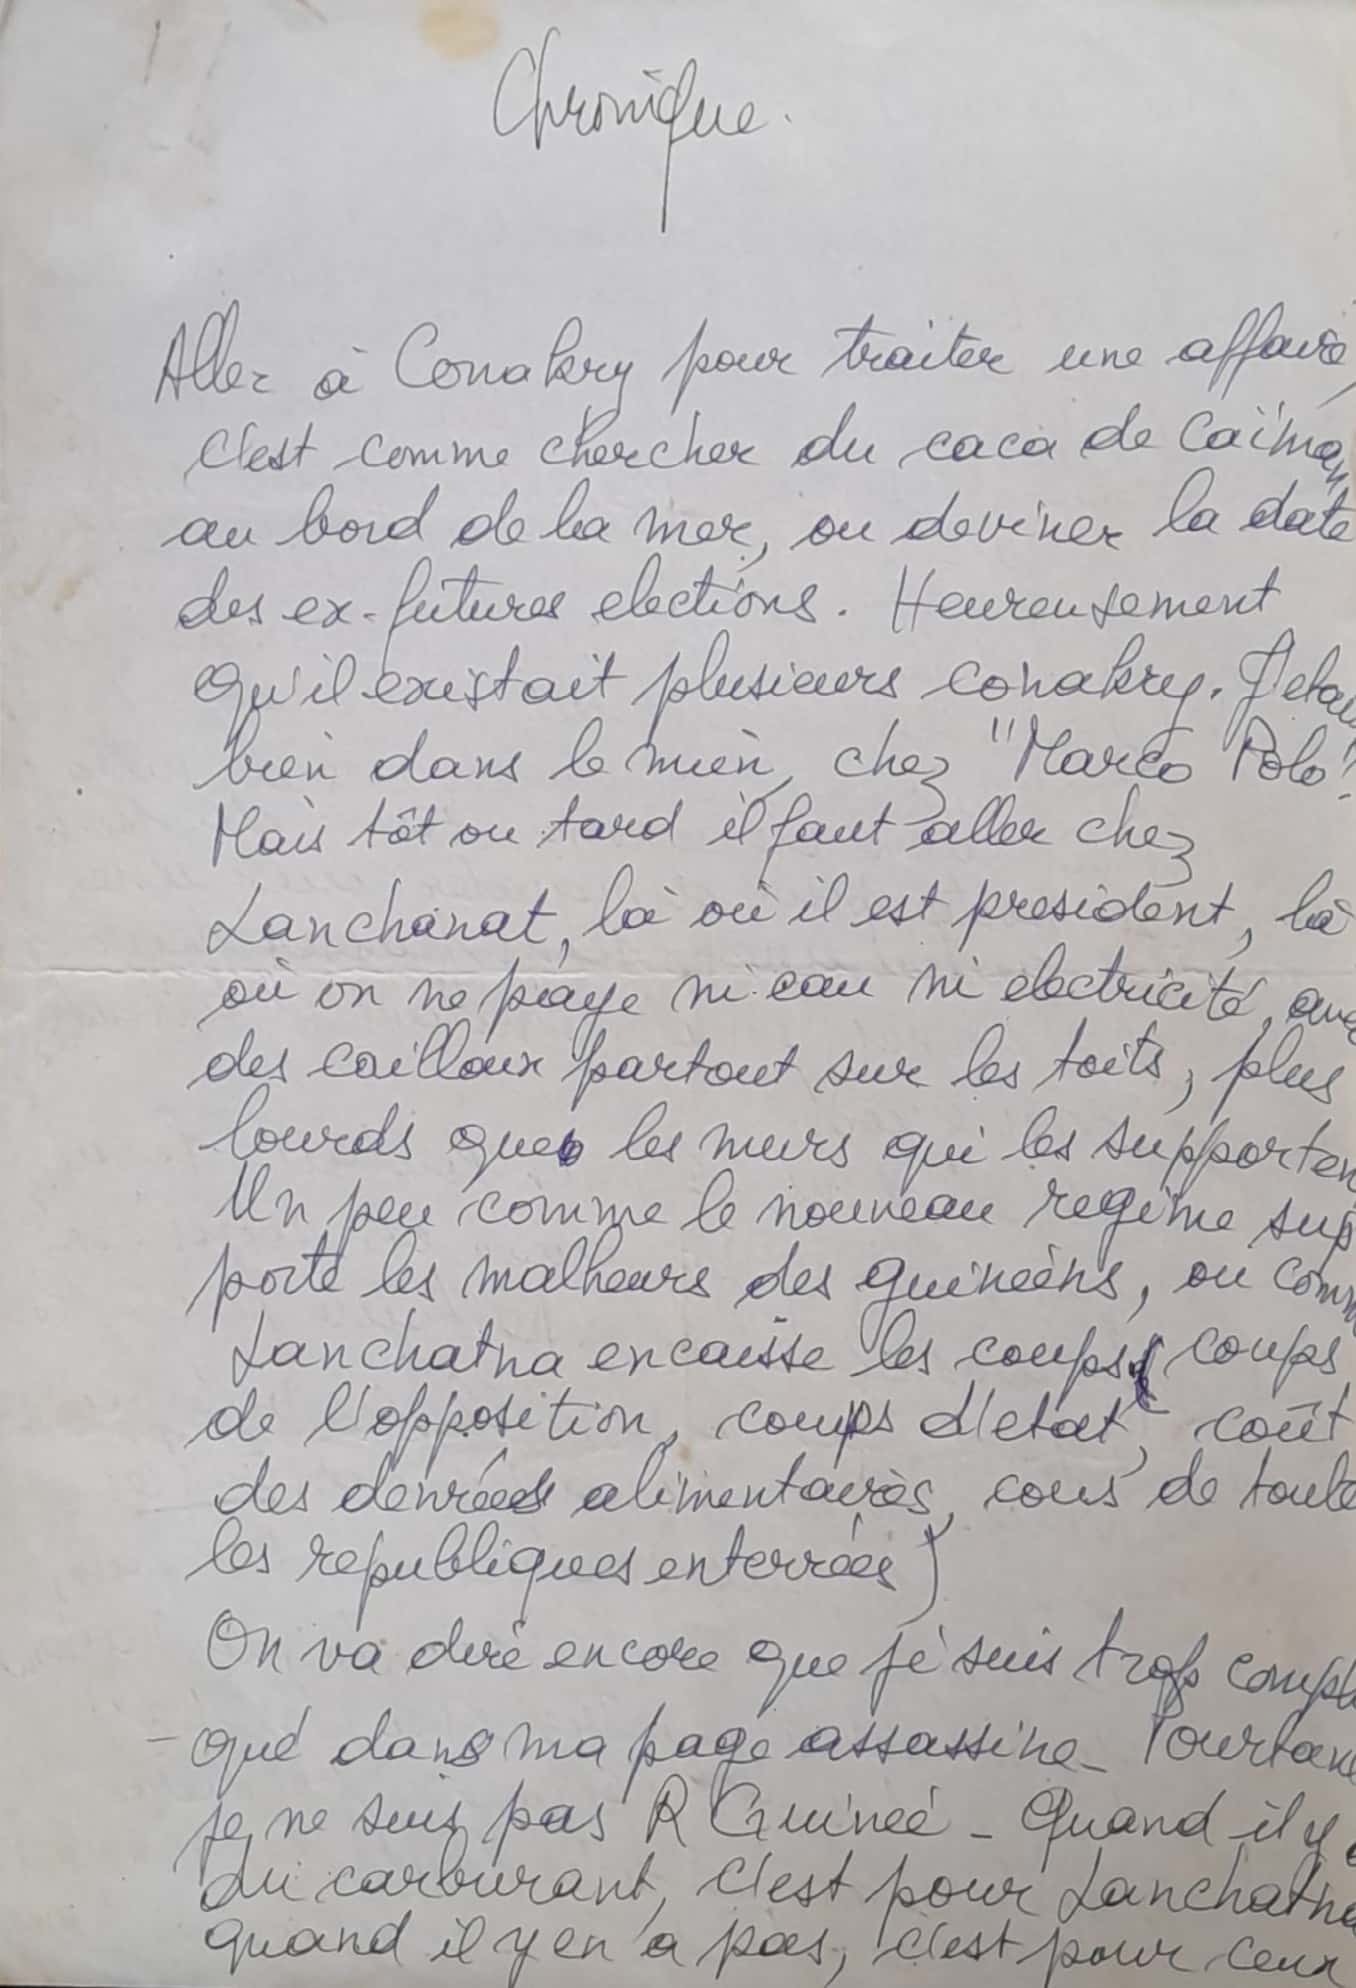 Chronique.
Aller à Conakry pour traiter une affaire,
c'est comme chercher du caca de Caïman
au bord de la mer, ou deviner la date
des ex-futures elections. Heureusement
qu'il existait plusieurs conakry. J'etais
bien dans le mien, chez "Marco Polo".
Mais tôt ou tard il faut aller chez
Lanchanat, là où il est president, là
où on ne paye ni eau ni electricité, avec
des cailloux partout sur les toits, plus
lourds que les murs qui les supporten
Un peu comme le nouveau regime sup
porte les malheurs des guinéens, ou comm
Lanchatna encaisse les coups ( coups
de l'opposition, coups d'etat, coût
des denrées alimentaires, cous de toute
les republiques enterrées)
On va dire encore que je suis trop compli
qué dans ma page assassine - Pourtant
je ne suis pas R Guineé - Quand il y a
du carburant, c'est pour Lanchatna
quand il y en a pas, c'est pour ceux